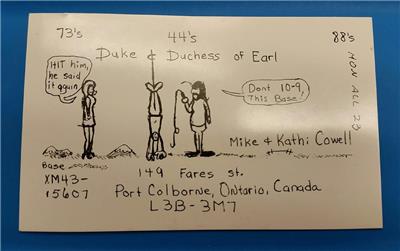 73's
44's
88's
Duke & Duchess of Earl
HIT him,
he said
it again
Dont 10-9,
This Base!
MON ALL 23
Mike & Kathi Cowell
Base
XM43-
15607
149 Fares st.
Port Colborne, Ontario, Canada
L3B-3M7